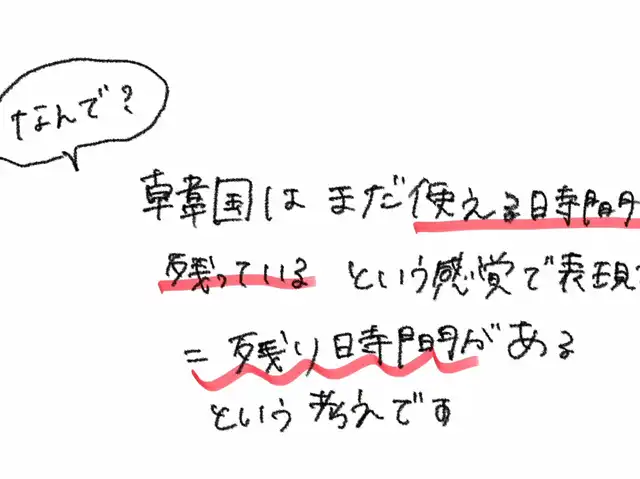 なんで?
韓国は まだ使える時間
残っている という感覚で表現
= 残り時間がある
という考えです